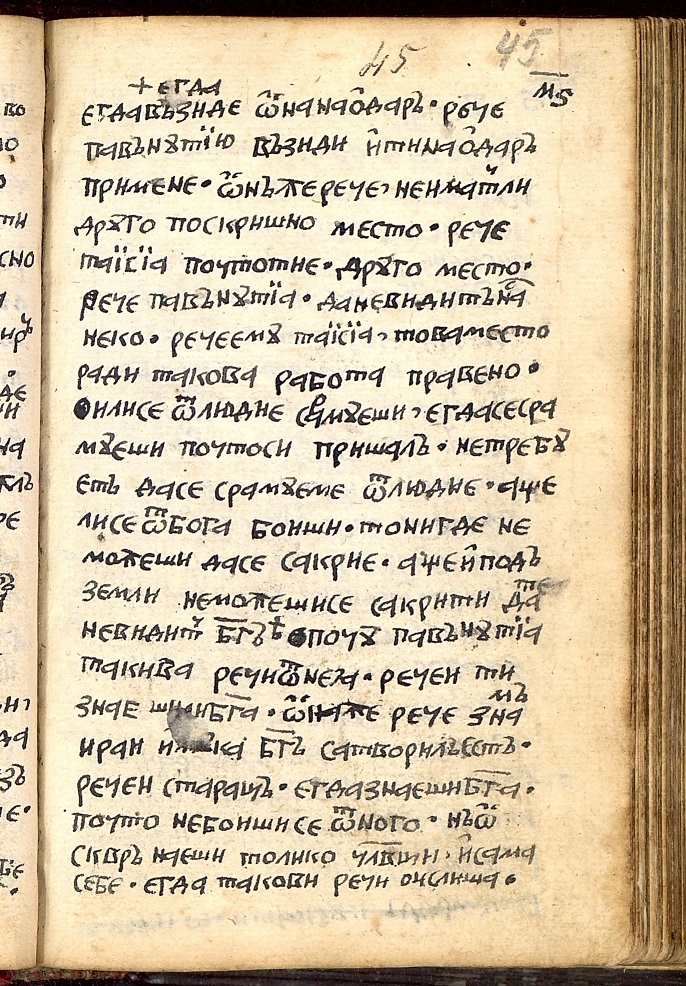 45 45
м҃ѕ
+ егда
егдавъзиде ѡ҆̑нанаѻ҆даръ · рече
павънꙋтїю възиди и҆тинаѻ҆даръ
примене · ѡ҆̑нъжерече, неиматⷧ҇и ли
дрꙋго поскришно место · рече
таїсїа почтотие · дрꙋго место ·
рече павънꙋтїа · даневидитъна
неко · речеемꙋ таїсїа, товаместо
ради такова работа правено ·
илисе ѿлюдие срамꙋеши, егдасесра
мꙋеши почтоси пришалъ · нетребꙋ
етъ дасе срамꙋеме ѿлюдие · аще
лисе ѿбога боиши · тонигде не
можеши дасе сакрие · ащеи҆подъ
земли неможешисе сакрити дате
невидитъ бг҃ъ почꙋ павънꙋтїа
такива речиѿнеꙗ · речеи ти
знае шилибг҃а · ѡ҆̑наже рече знамъ
ираи имꙋка бг҃ъ сатворилъестъ ·
речеи старацъ · егдазнаешибг҃а ·
почто небоиши се ѿного · нъѡ҆̑
скврънаеши толико чл҃вци, и҆сама
себе · егда такови речи очслиша ·